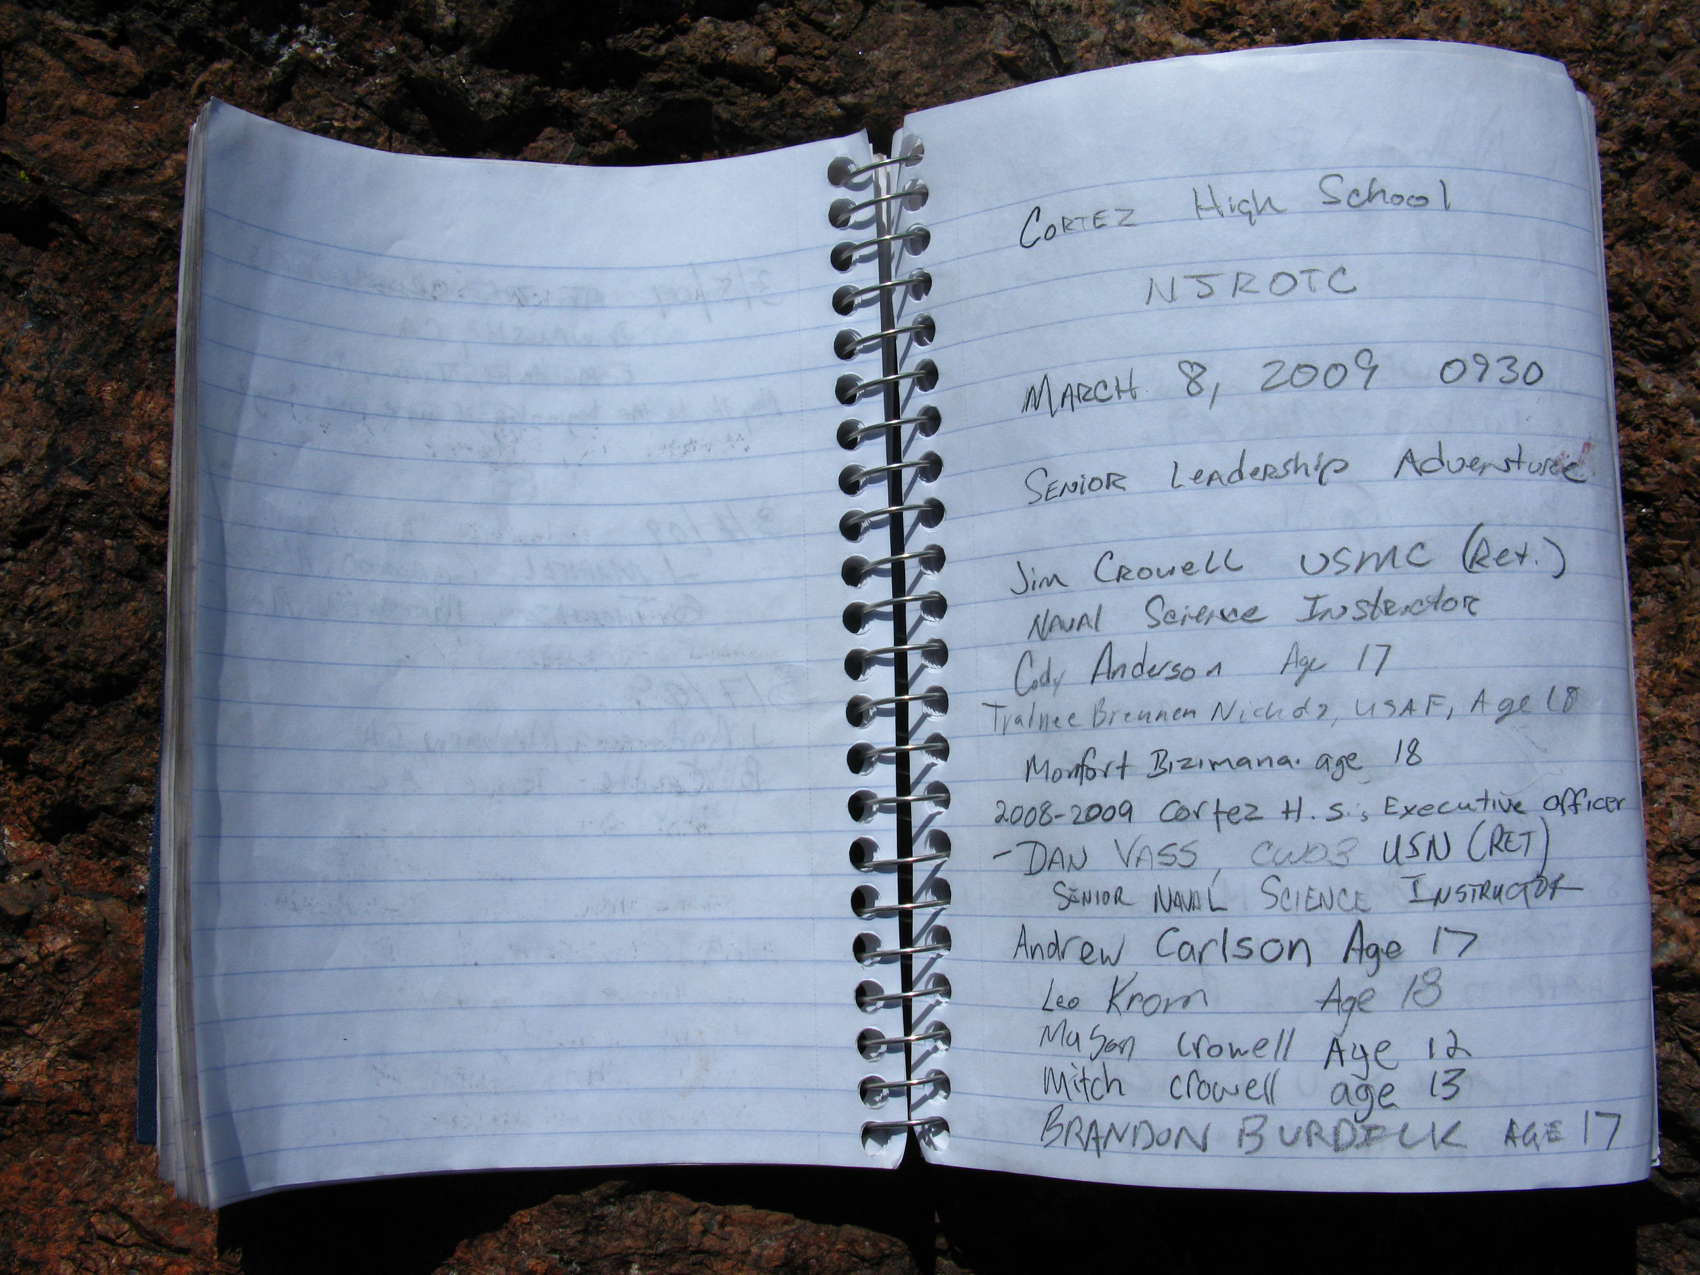 Cortez High School
NJROTC
March 8, 2009 0930
Senior Leadership Adventure
Jim Crowell USMC (Ret.)
Naval Science Instructor
Cody Anderson Age 17
Trainee Brennen Nichols, USAF, Age 18
Monfort Bizimana. age 18
2008-2009 Cortez H.S., Executive officer
- DAN VASS, CWO3 USN (RET)
SENIOR NAVAL SCIENCE INSTRUCTOR
Andrew Carlson Age 17
Leo Krom Age 18
Mason Crowell Age 12
Mitch Crowell age 13
BRANDON BURDICK AGE 17